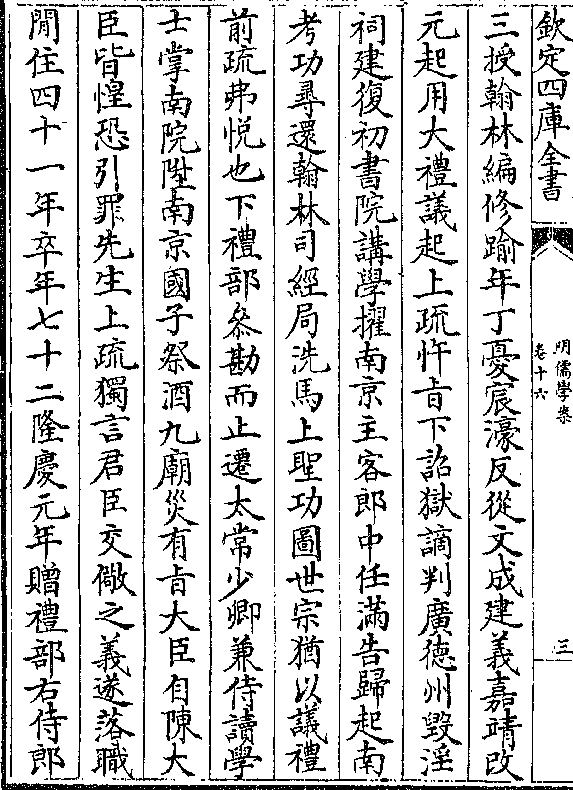 欽定四庫全書
明儒學案
卷十六
三
三授翰林編修踰年丁憂宸濠反從文成建義嘉靖改
元起用大禮議起上疏忤㫖下詔獄謫判廣德州毁淫
祠建復初書院講學擢南京主客郎中任滿告歸起南
考功尋還翰林司經局洗馬上聖功圖世宗猶以議禮
前疏弗悦也下禮部叅勘而止遷太常少卿兼侍讀學
士掌南院陞南京國子祭酒九廟災有㫖大臣自陳大
臣皆惶恐引罪先生上疏獨言君臣交儆之義遂落職
閒住四十一年卒年七十二隆慶元年贈禮部右侍郎